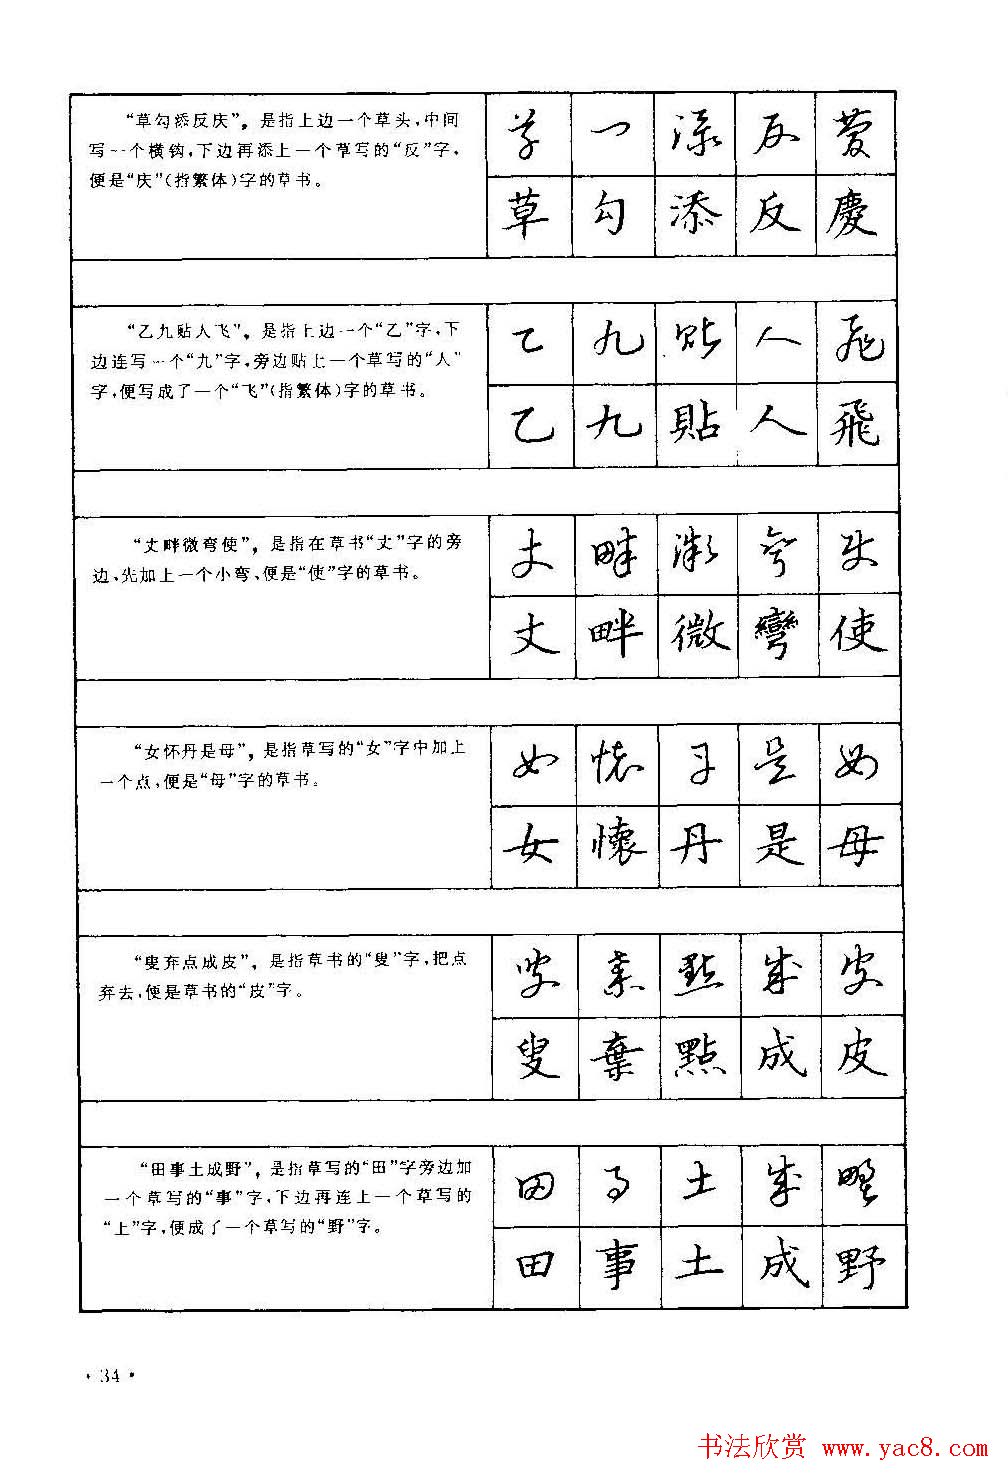 “草勾添反庆”，是指上边一个草头，中间
写一个横钩，下边再添上一个草写的“反”字，
便是“庆”（指繁体）字的草书。
草 勾 添 反 慶
草 勾 添 反 慶
“乙九贴人飞”，是指上边一个“乙”字，下
边连写一个“九”字，旁边贴上一个草写的“人”
字，便写成了一个“飞”（指繁体）字的草书。
乙 九 貼 人 飛
乙 九 貼 人 飛
“丈畔微弯使”，是指在草书“丈”字的旁
边，先加上一个小弯，便是“使”字的草书。
丈 畔 微 彎 使
丈 畔 微 彎 使
“女怀丹是母”，是指草写的“女”字中加上
一个点，便是“母”字的草书。
女 懷 丹 是 母
女 懷 丹 是 母
“叟弃点成皮”，是指草书的“叟”字，把点
弃去，便是草书的“皮”字。
叟 棄 點 成 皮
叟 棄 點 成 皮
“田事土成野”，是指草写的“田”字旁边加
一个草写的“事”字，下边再连上一个草写的
“上”字，便成了一个草写的“野”字。
田 事 土 成 野
田 事 土 成 野
·34·
书法欣赏 www.yac8.com